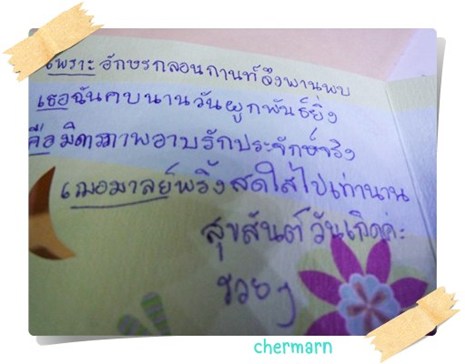 เพราะอักษรกลอนกานท์จึงพานพบ
เธอฉันคบนานวันผูกพันธ์ยิ่ง
คือมิตรภาพอาบรักประจักษ์จริง
เฌอมาลย์พริ้งสดใสไปเท่านาน
สุขสันต์วันเกิดค่ะ
chermarn